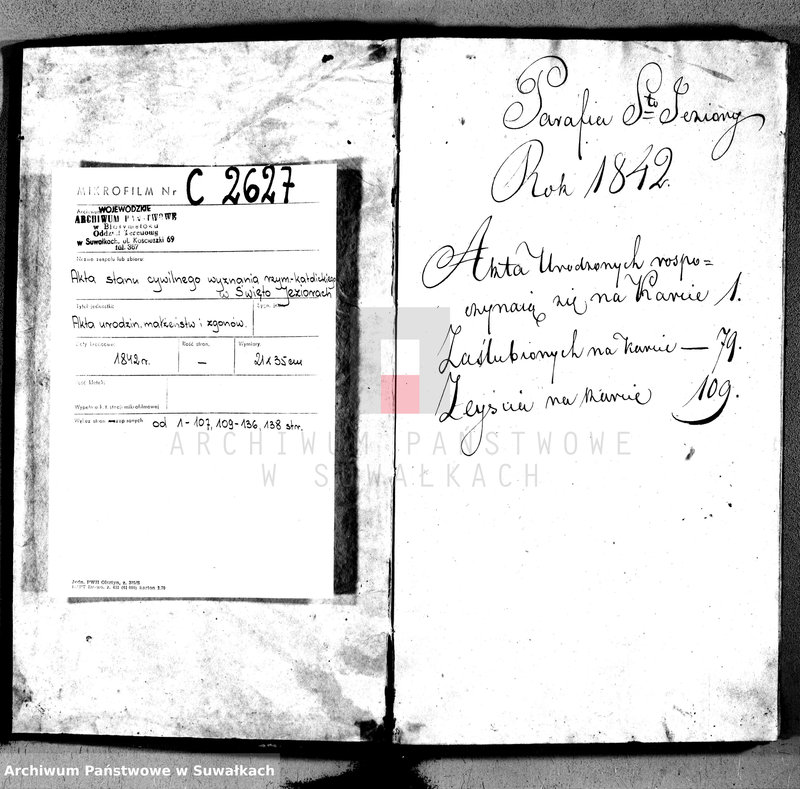 MIKROFILM Nr C 2627
Archiwum WOJEWÓDZKIE
ARCHIWUM PAŃSTWOWE
w Białymstoku
Oddział Terenowy
w Suwałkach, ul. Kościuszki 69
tel. 367
Nazwa zespołu lub zbioru:
Akta stanu cywilnego wyznania rzym-katolickiego
w Święto Jeziorach
Tytuł jednostki: Sygn. jedn.
Akta urodzin, małżeństw i zgonów.
Daty krańcowe: Ilość stron. Wymiary.
1842 r. — 21x35 cm
Ilość klatek:
Wypełnia k. t. stacji mikrofilmowej
od 1-107, 109-136, 138 str.
Parafia Sto Jeziory
Rok 1842.
Akta Urodzonych rospo=
czynaią się na Karcie 1.
Zaślubionych na karcie — 79.
Zeyścia na karcie 109.
ARCHIWUM PAŃSTWOWE
W SUWAŁKACH
Archiwum Państwowe w Suwałkach